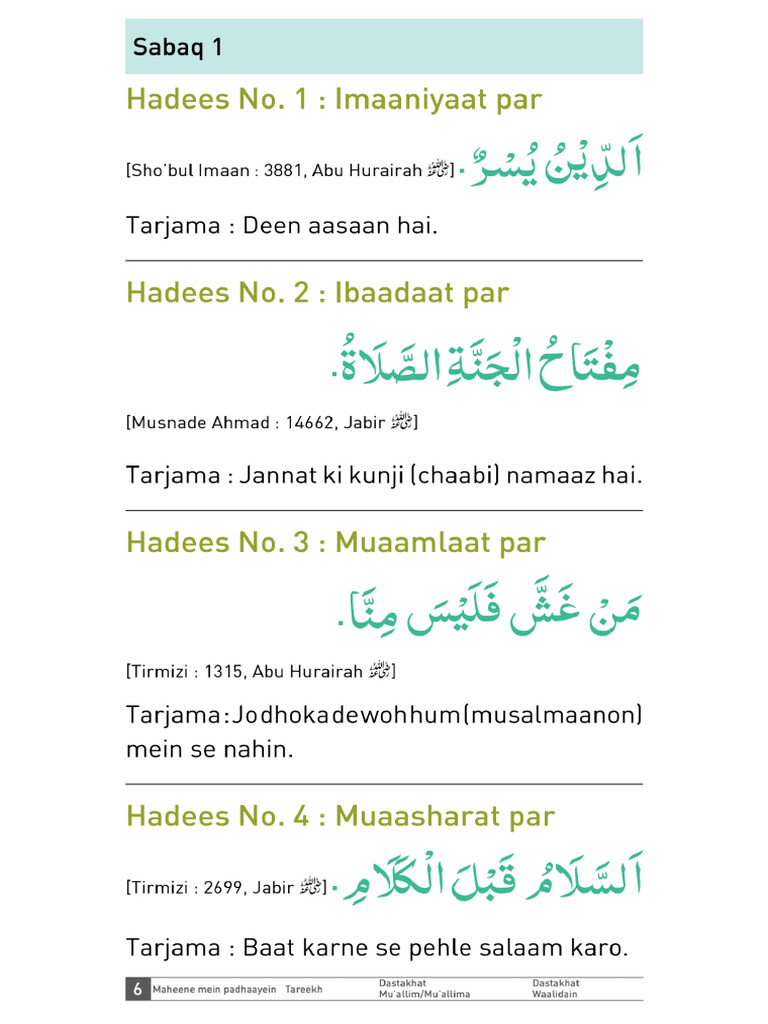 Sabaq 1
Hadees No. 1 : Imaaniyaat par
اَلدِّيْنُ يُسْرٌ.
[Sho'bul Imaan : 3881, Abu Hurairah رضي الله عنه]
Tarjama : Deen aasaan hai.
Hadees No. 2 : Ibaadaat par
مِفْتَاحُ الْجَنَّةِ الصَّلَاةُ.
[Musnade Ahmad : 14662, Jabir رضي الله عنه]
Tarjama : Jannat ki kunji (chaabi) namaaz hai.
Hadees No. 3 : Muaamlaat par
مَنْ غَشَّ فَلَيْسَ مِنَّا.
[Tirmizi : 1315, Abu Hurairah رضي الله عنه]
Tarjama : Jo dhoka de woh hum (musalmaanon)
mein se nahin.
Hadees No. 4 : Muaasharat par
اَلسَّلَامُ قَبْلَ الْكَلَامِ.
[Tirmizi : 2699, Jabir رضي الله عنه]
Tarjama : Baat karne se pehle salaam karo.
6 Maheene mein padhaayein Tareekh Dastakhat Mu'allim/Mu'allima Dastakhat Waalidain